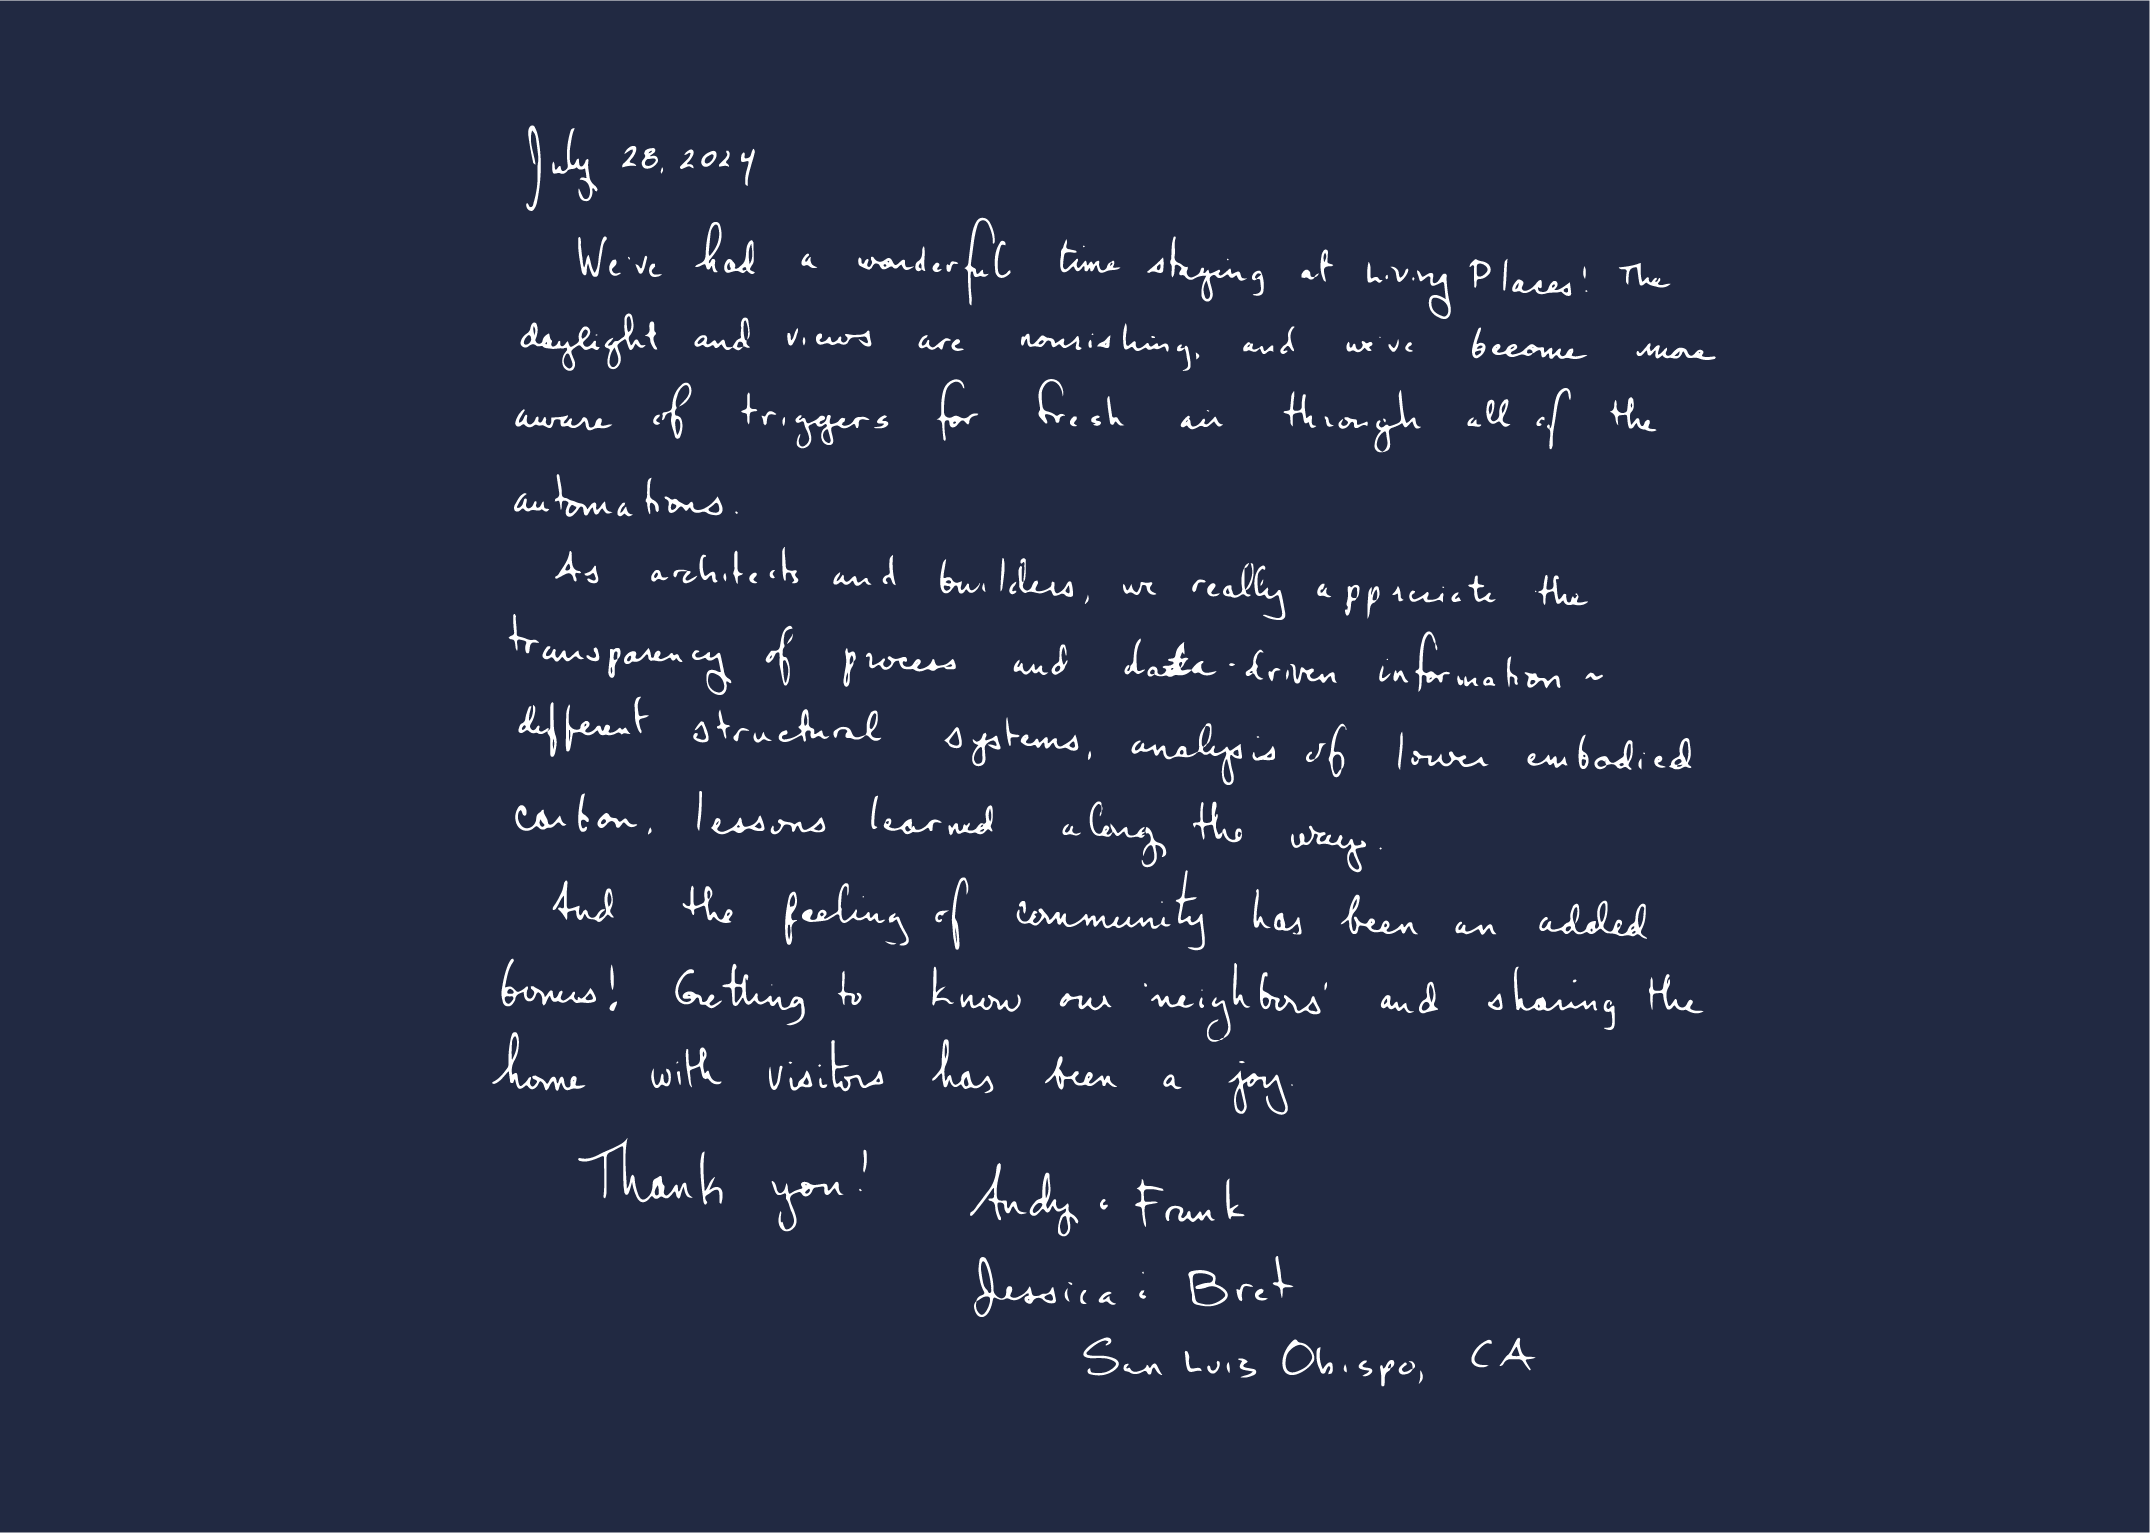 July 28, 2024
We've had a wonderful time staying at Living Places! The
daylight and views are nourishing, and we've become more
aware of triggers for fresh air through all of the
automations.
As architects and builders, we really appreciate the
transparency of process and data-driven information ~
different structural systems, analysis of lower embodied
carbon, lessons learned along the way.
And the feeling of community has been an added
bonus! Getting to know our 'neighbors' and sharing the
home with visitors has been a joy.
Thank you! Andy & Frank
Jessica & Bret
San Luis Obispo, CA